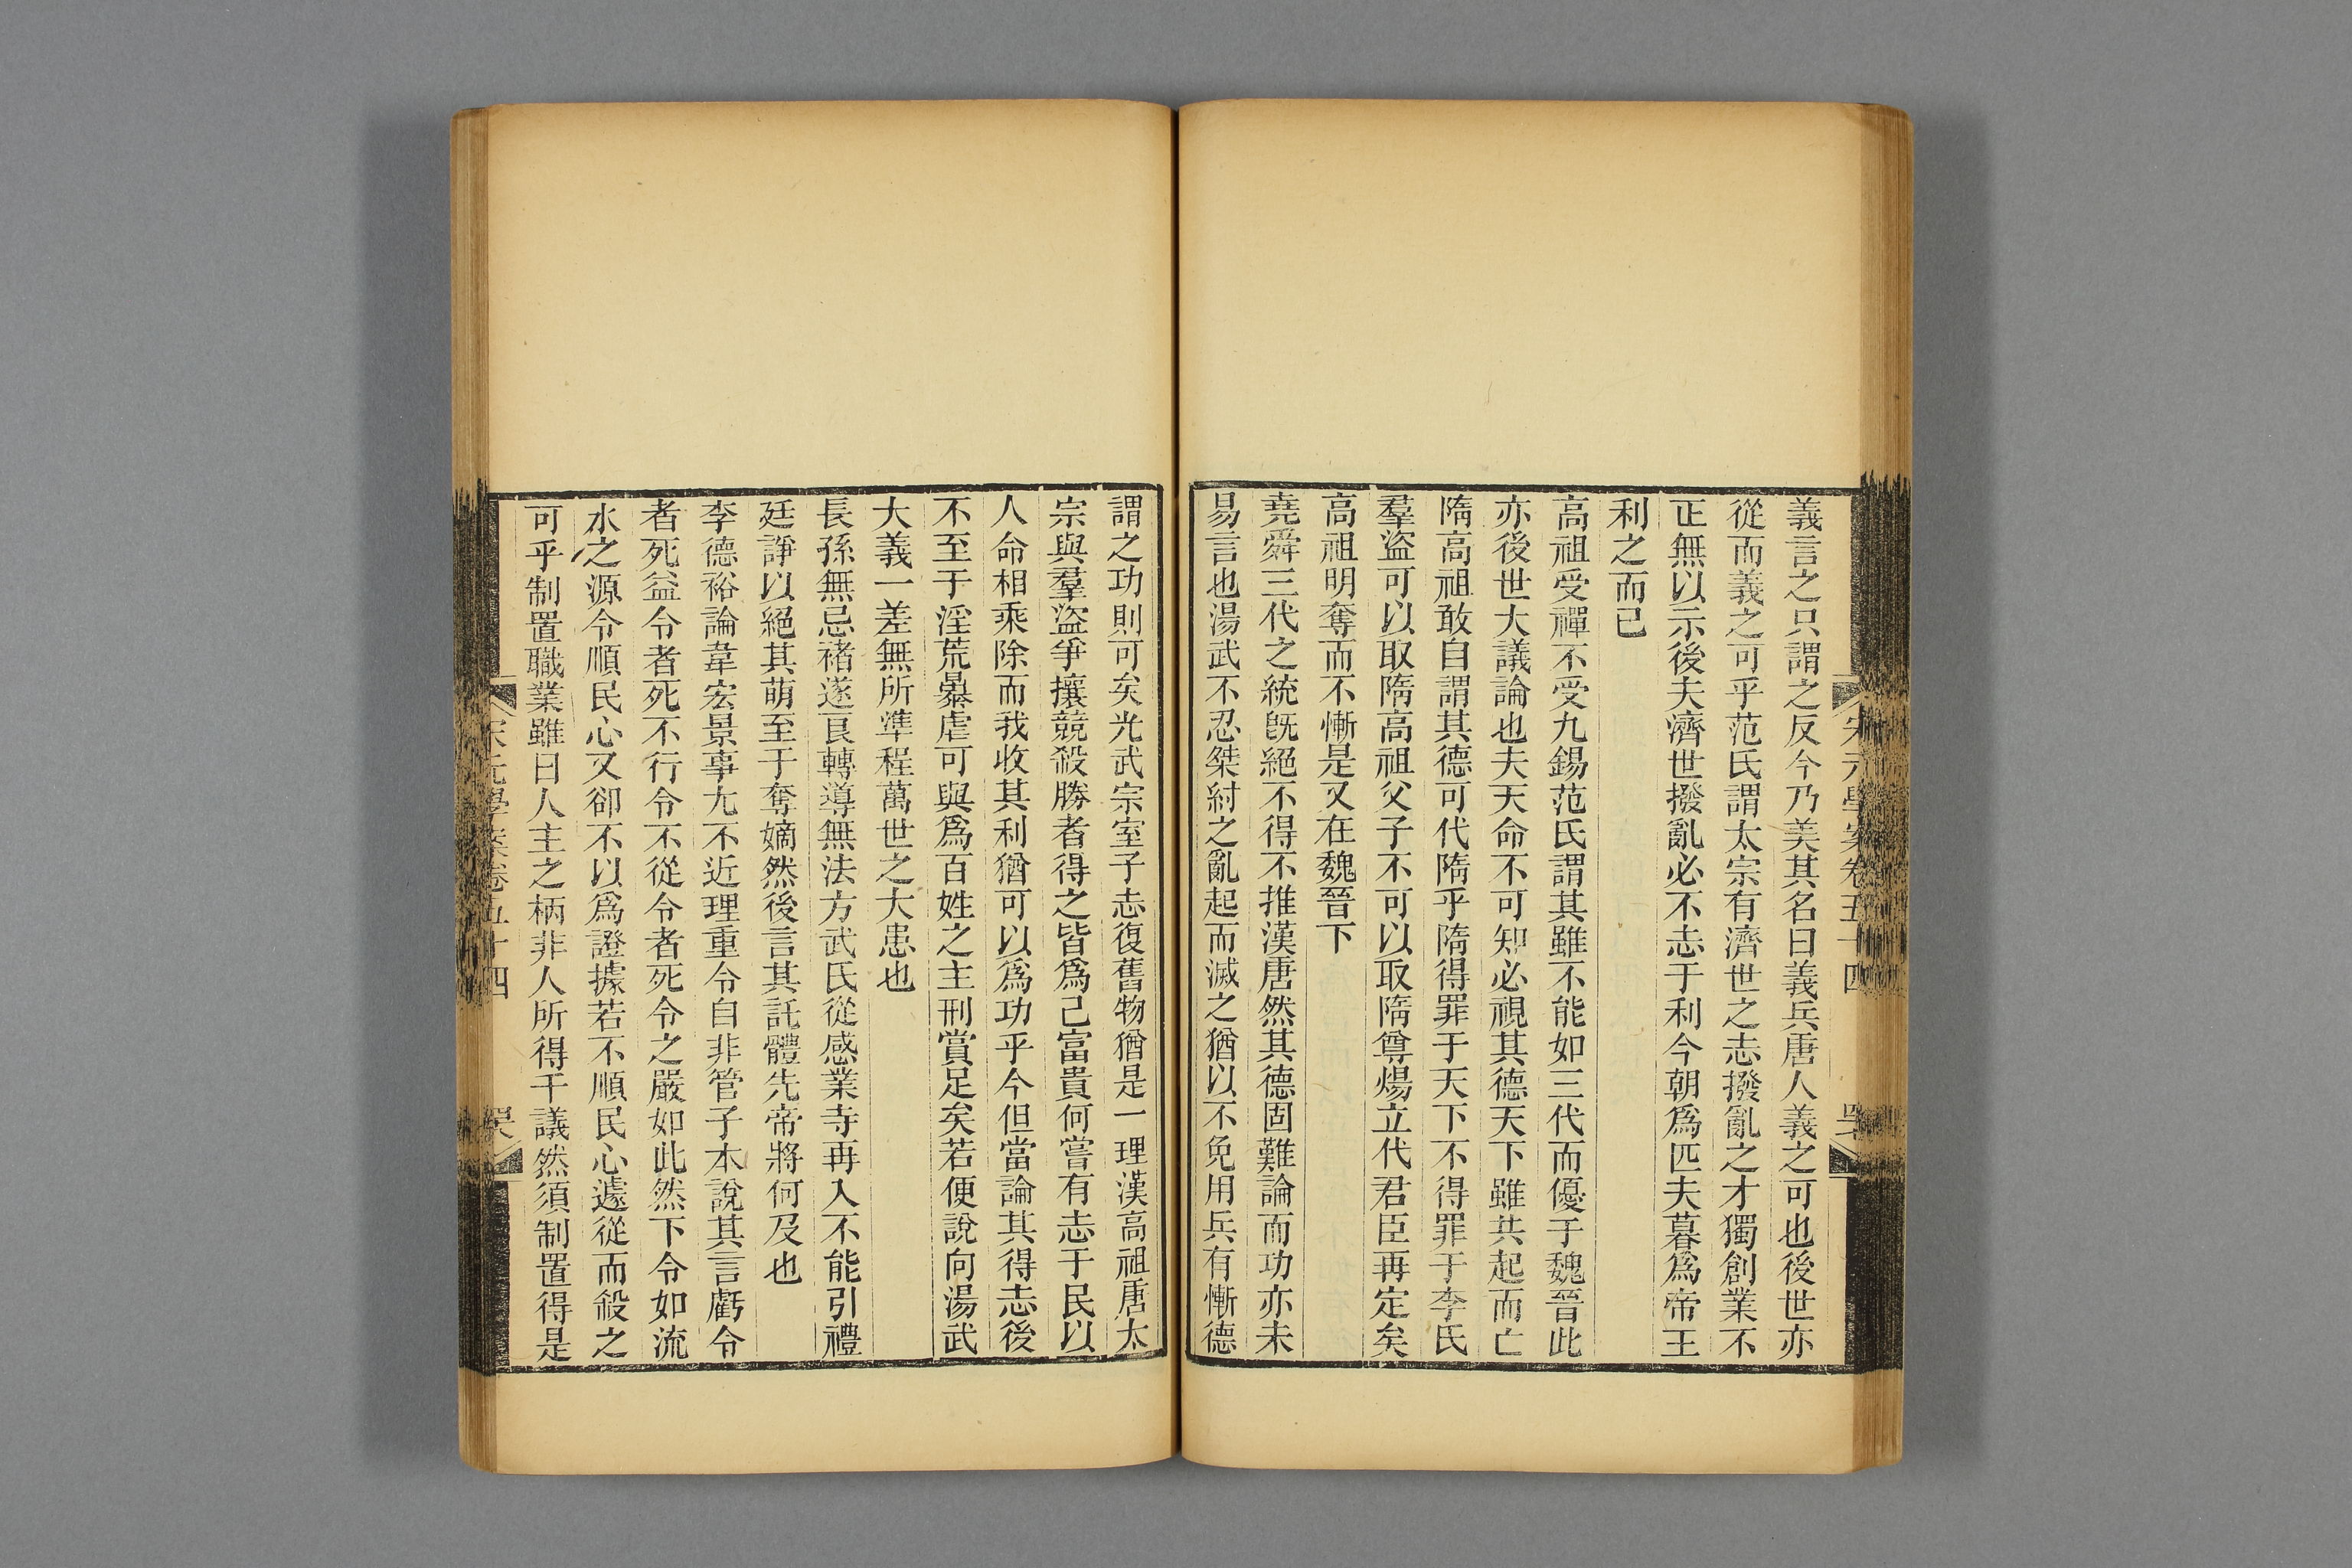 義言之只謂之反今乃美其名曰義兵唐人義之可也後世亦
從而義之可乎范氏謂太宗有濟世之志撥亂之才獨創業不
正無以示後夫濟世撥亂必不志于利今朝爲匹夫暮爲帝王
利之而已
高祖受禪不受九錫范氏謂其雖不能如三代而優于魏晉此
亦後世大議論也夫天命不可知必視其德天下雖共起而亡
隋高祖敢自謂其德可代隋乎隋得罪于天下不得罪于李氏
羣盜可以取隋高祖父子不可以取隋尊煬立代君臣再定矣
高祖明奪而不慚是又在魏晉下
堯舜三代之統旣絕不得不推漢唐然其德固難論而功亦未
易言也湯武不忍桀紂之亂起而滅之猶以不免用兵有慚德
謂之功則可矣光武宗室子志復舊物猶是一理漢高祖唐太
宗與羣盜爭攘競殺勝者得之皆爲己富貴何嘗有志于民以
人命相乘除而我收其利猶可以爲功乎今但當論其得志後
不至于淫荒暴虐可與爲百姓之主刑賞足矣若便說向湯武
大義一差無所準程萬世之大患也
長孫無忌褚遂良轉導無法方武氏從感業寺再入不能引禮
廷諍以絕其萌至于奪嫡然後言其託體先帝將何及也
李德裕論韋宏景事尢不近理重令自非管子本說其言虧令
者死益令者死不行令不從令者死令之嚴如此然下令如流
水之源令順民心又卻不以爲證據若不順民心遽從而殺之
可乎制置職業雖曰人主之柄非人所得干議然須制置得是
宋元學案卷五十四